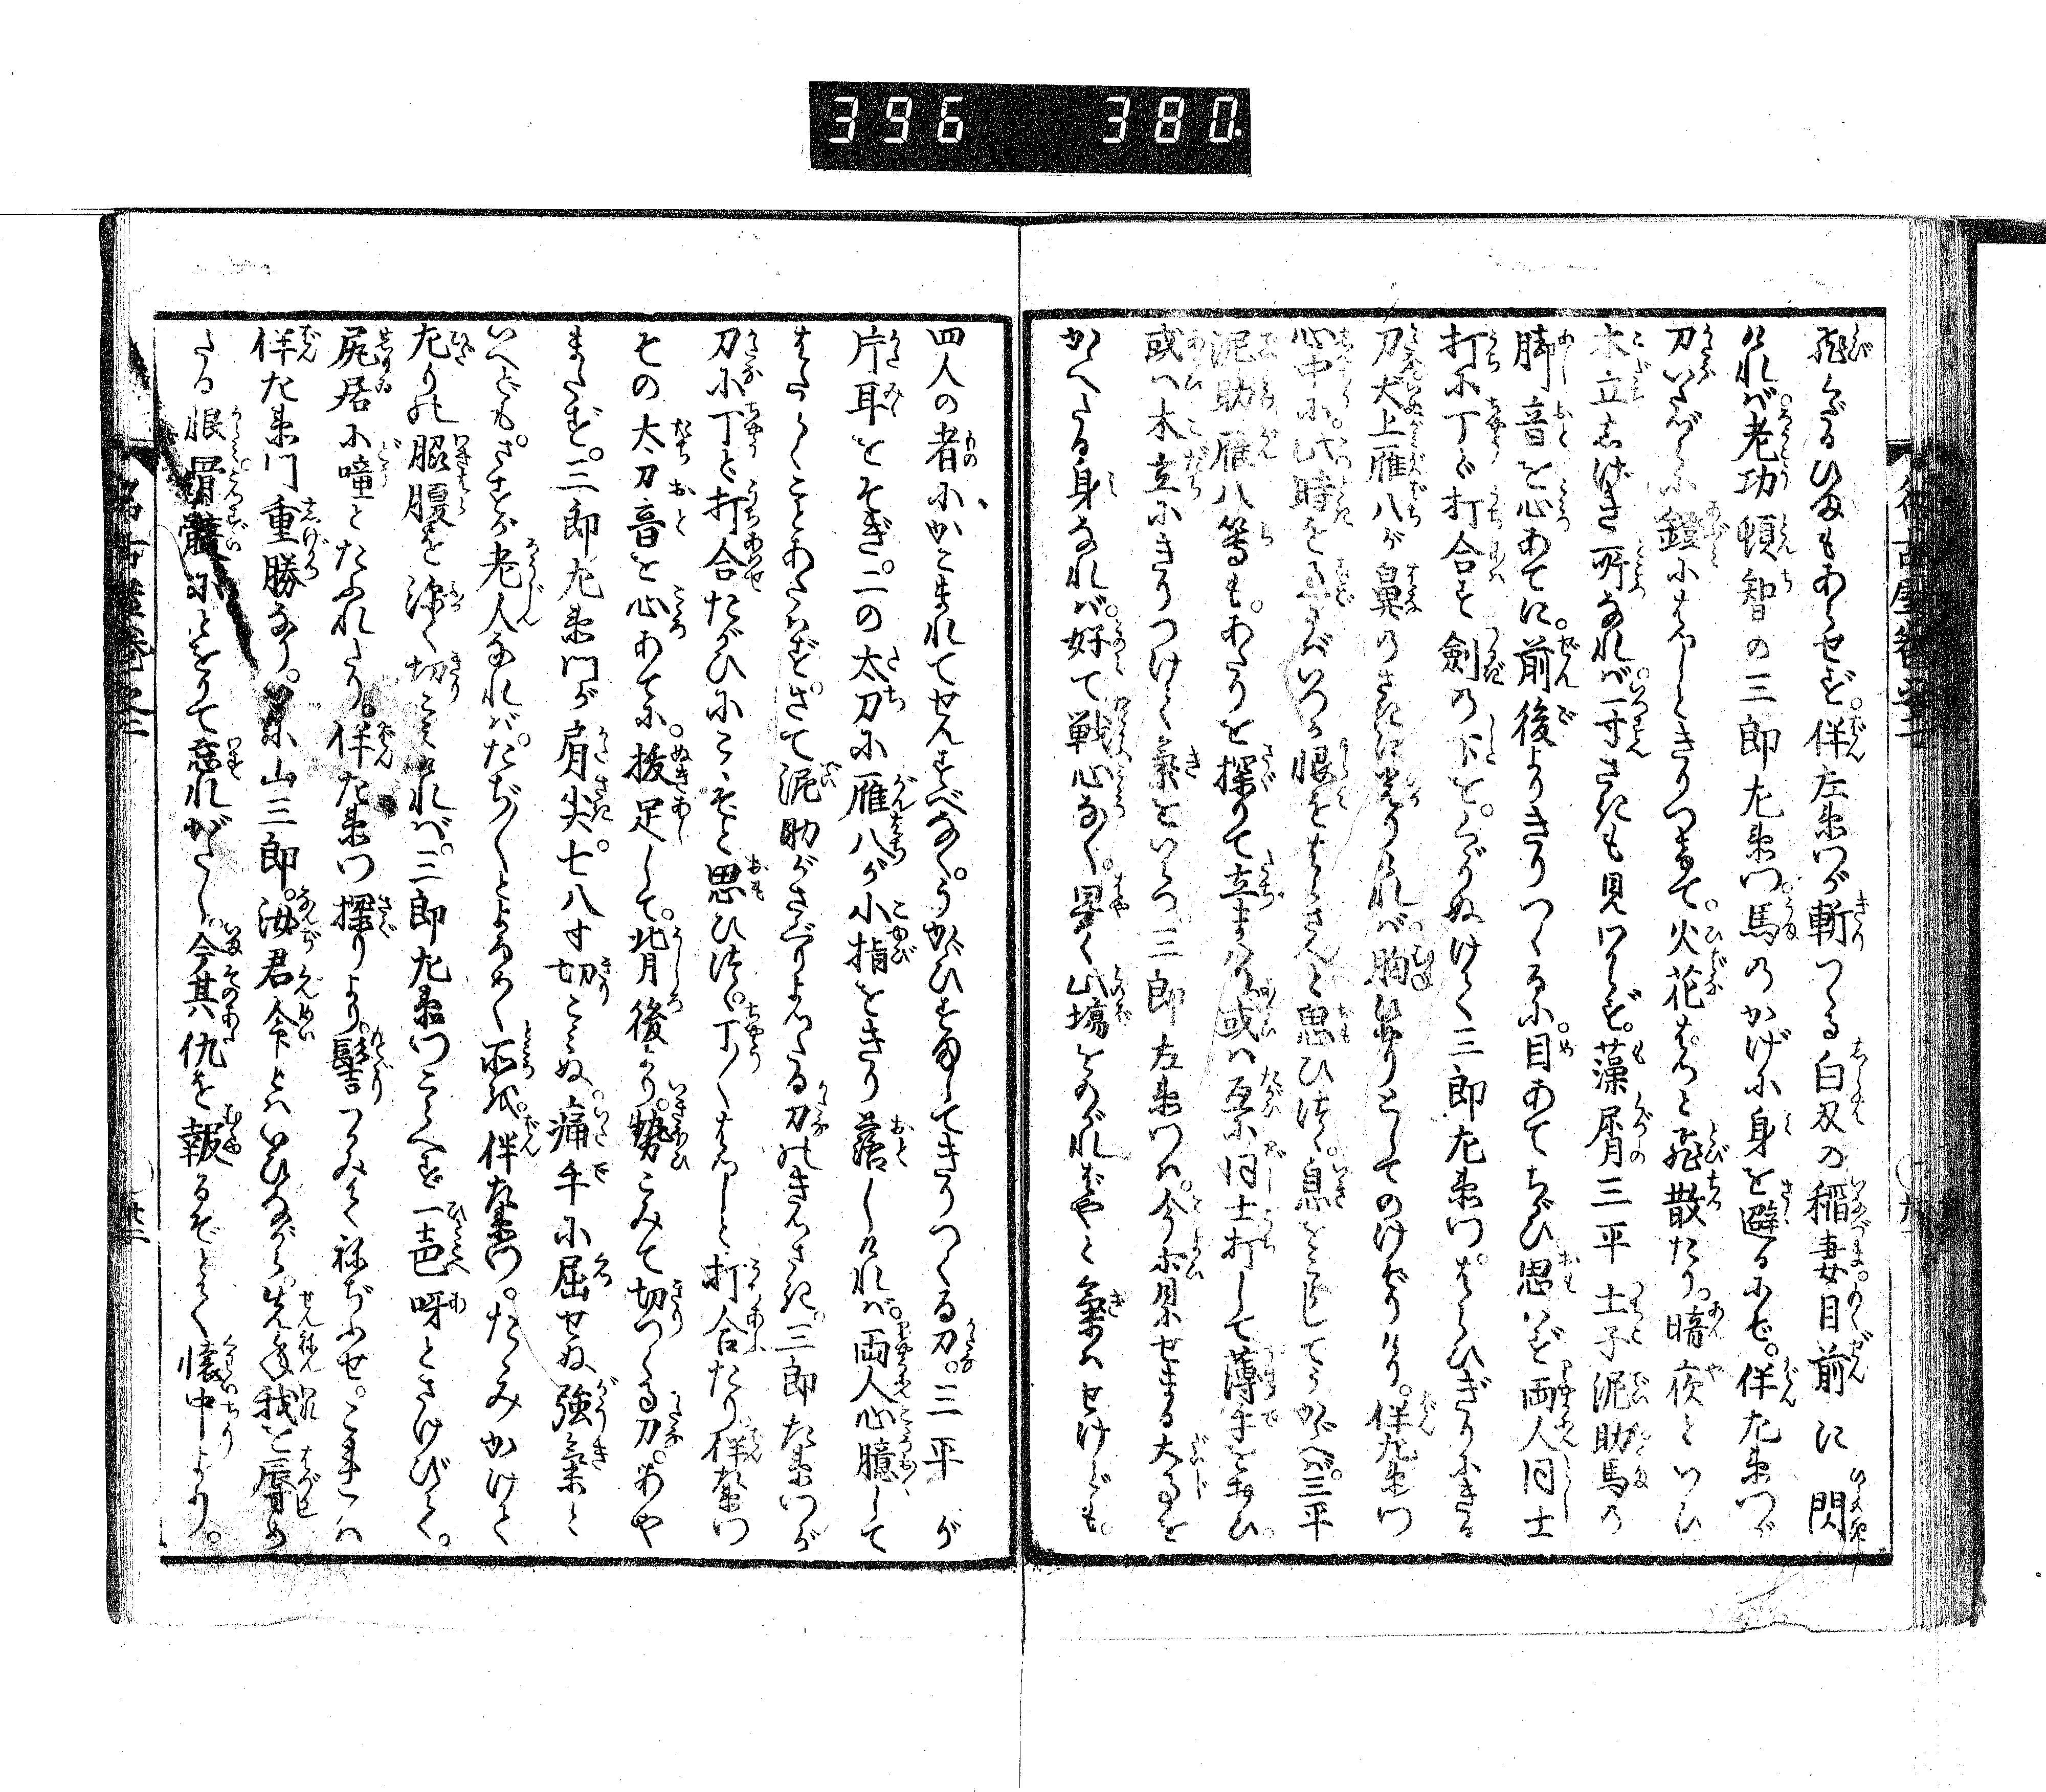 396 380.
飛くだるひまもあらせず。伴左衛門が斬つくる白刃の稲妻目前に閃
ければ老功頓智の三郎左衛門。馬のかげに身を避るにぞ。伴左衛門が
刀いたづらに鐙にはつしときりつけて。火花はつと飛散たり。暗夜といひ
木立しげき所なれば一寸さきも見わかず。藻屑三平土子泥助馬の
脚音を心あてに。前後よりきりつくるに。目あてちがひ思はず両人同士
打に丁ど打合す剣の下を。くゞりぬけて三郎左衛門。はらひぎりにきる
刀犬上雁八が鼻のさきに光りければ胸ひやりとしてのけぞりけり。伴左衛門
心中に。此時をまたずいつか恨をはらさんと思ひつゝ。息をこらしてうかゞへば。三平
泥助雁八等も。あたりを探りて立まはり或は互に同士打して薄手をおひ。
或は木立にきりつけて気をいらつ。三郎左衛門は。今宵にせまる大事を
かゝへたる身なれば。好て戦心なく。畧く此場をのがればやと気はせけども。
四人の者にかこまれてせんすべなく。うかゞひすましてきりつくる刀。三平が
片耳をそぎ。二の太刀に雁八が小指をきり落しければ。両人心臆して
はたらくことあたはず。さて泥助がさぐりよつたる刀のきつさき。三郎左衛門が
刀に丁ど打合たがひにこゝぞと思ひつゝ。丁〳〵はつしと打合たり。伴左衛門
その太刀音を心あてに。抜足して。背後より。勢こみて切つくる刀。あや
またず。三郎左衛門が肩尖。七八寸切こみぬ。痛手に屈せぬ強気と
いへども。さすが老人なればたぢ〳〵とよろめく所を。伴左衛門。たゝみかけて
左りの脇腹を深く切こみければ。三郎左衛門こらへず一声呀とさけびて。
尻居に噇とたふれたり。伴左衛門探りより。髻つかみて祢ぢふせ。これは
伴左衛門重勝なり。名古山三郎。汝君命とはいひながら。先年我を辱め
たる恨骨髄にとをりて忘れがたし。今其仇を報るぞとて懐中より。